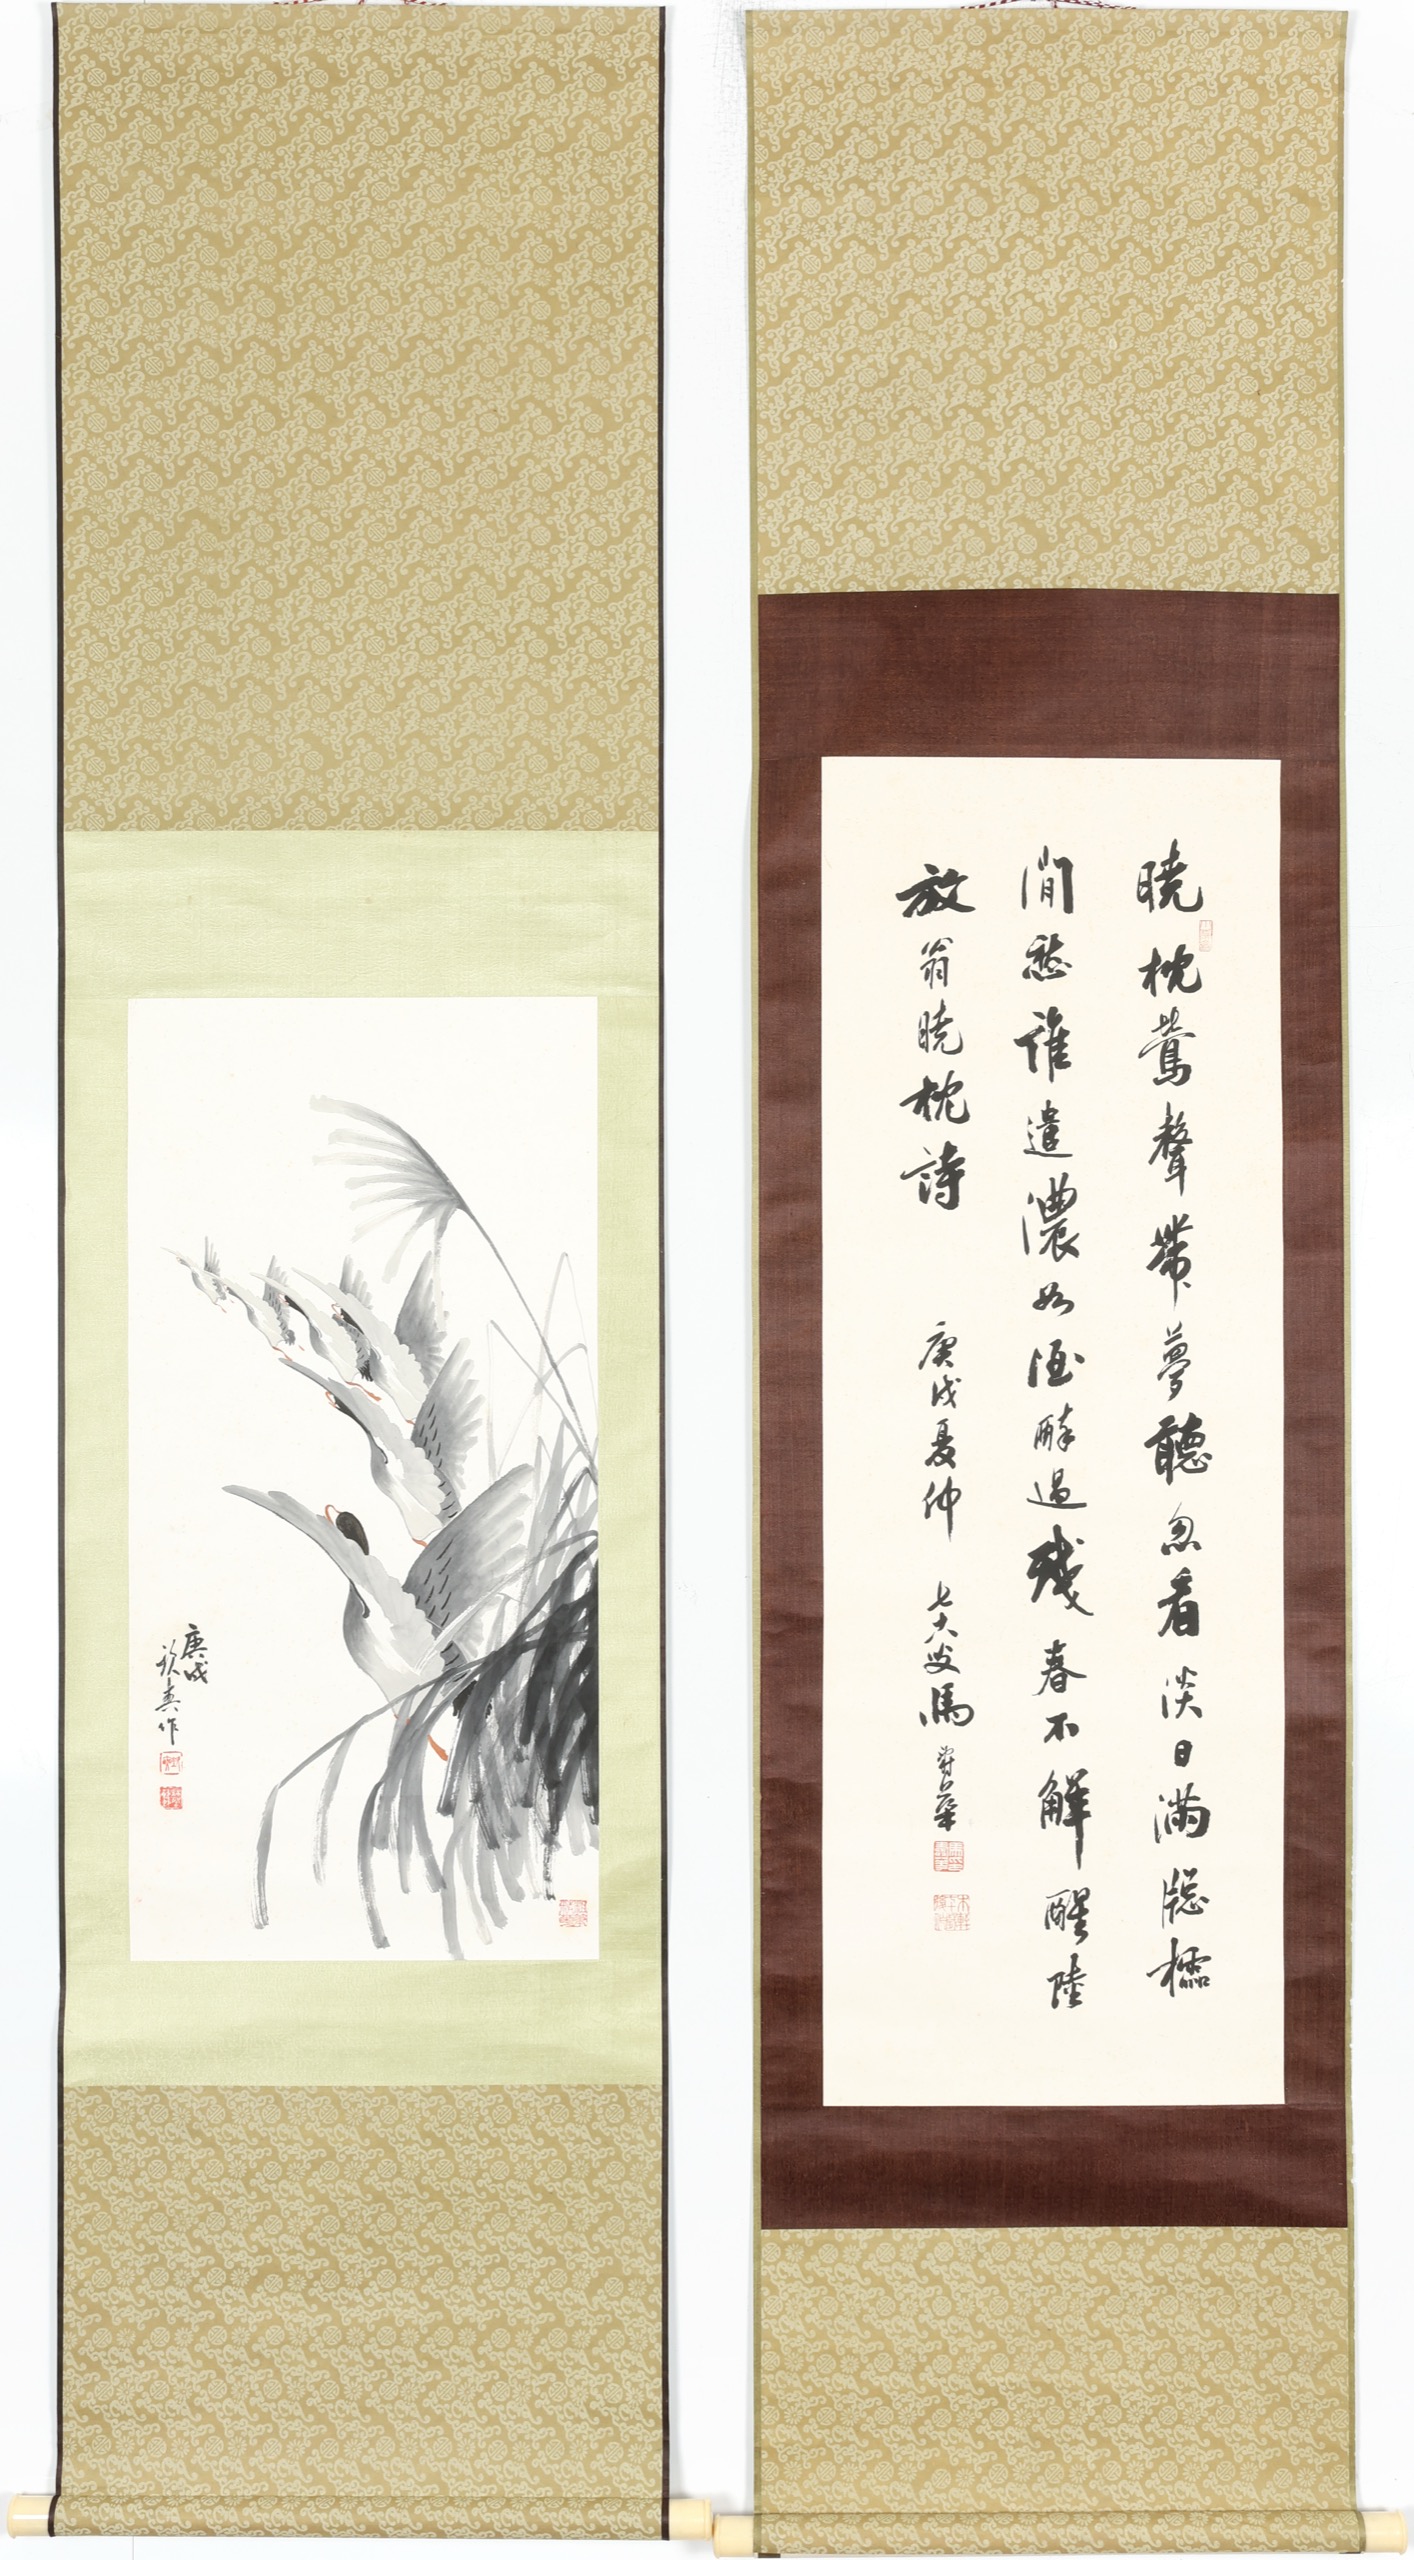 曉枕鶯聲帶夢聽忽看淡日滿牕櫺
閒愁誰遣濃如酒醉過殘春不解醒陸
放翁曉枕詩 庚戌夏仲 叟馬壽華
庚戌
真作